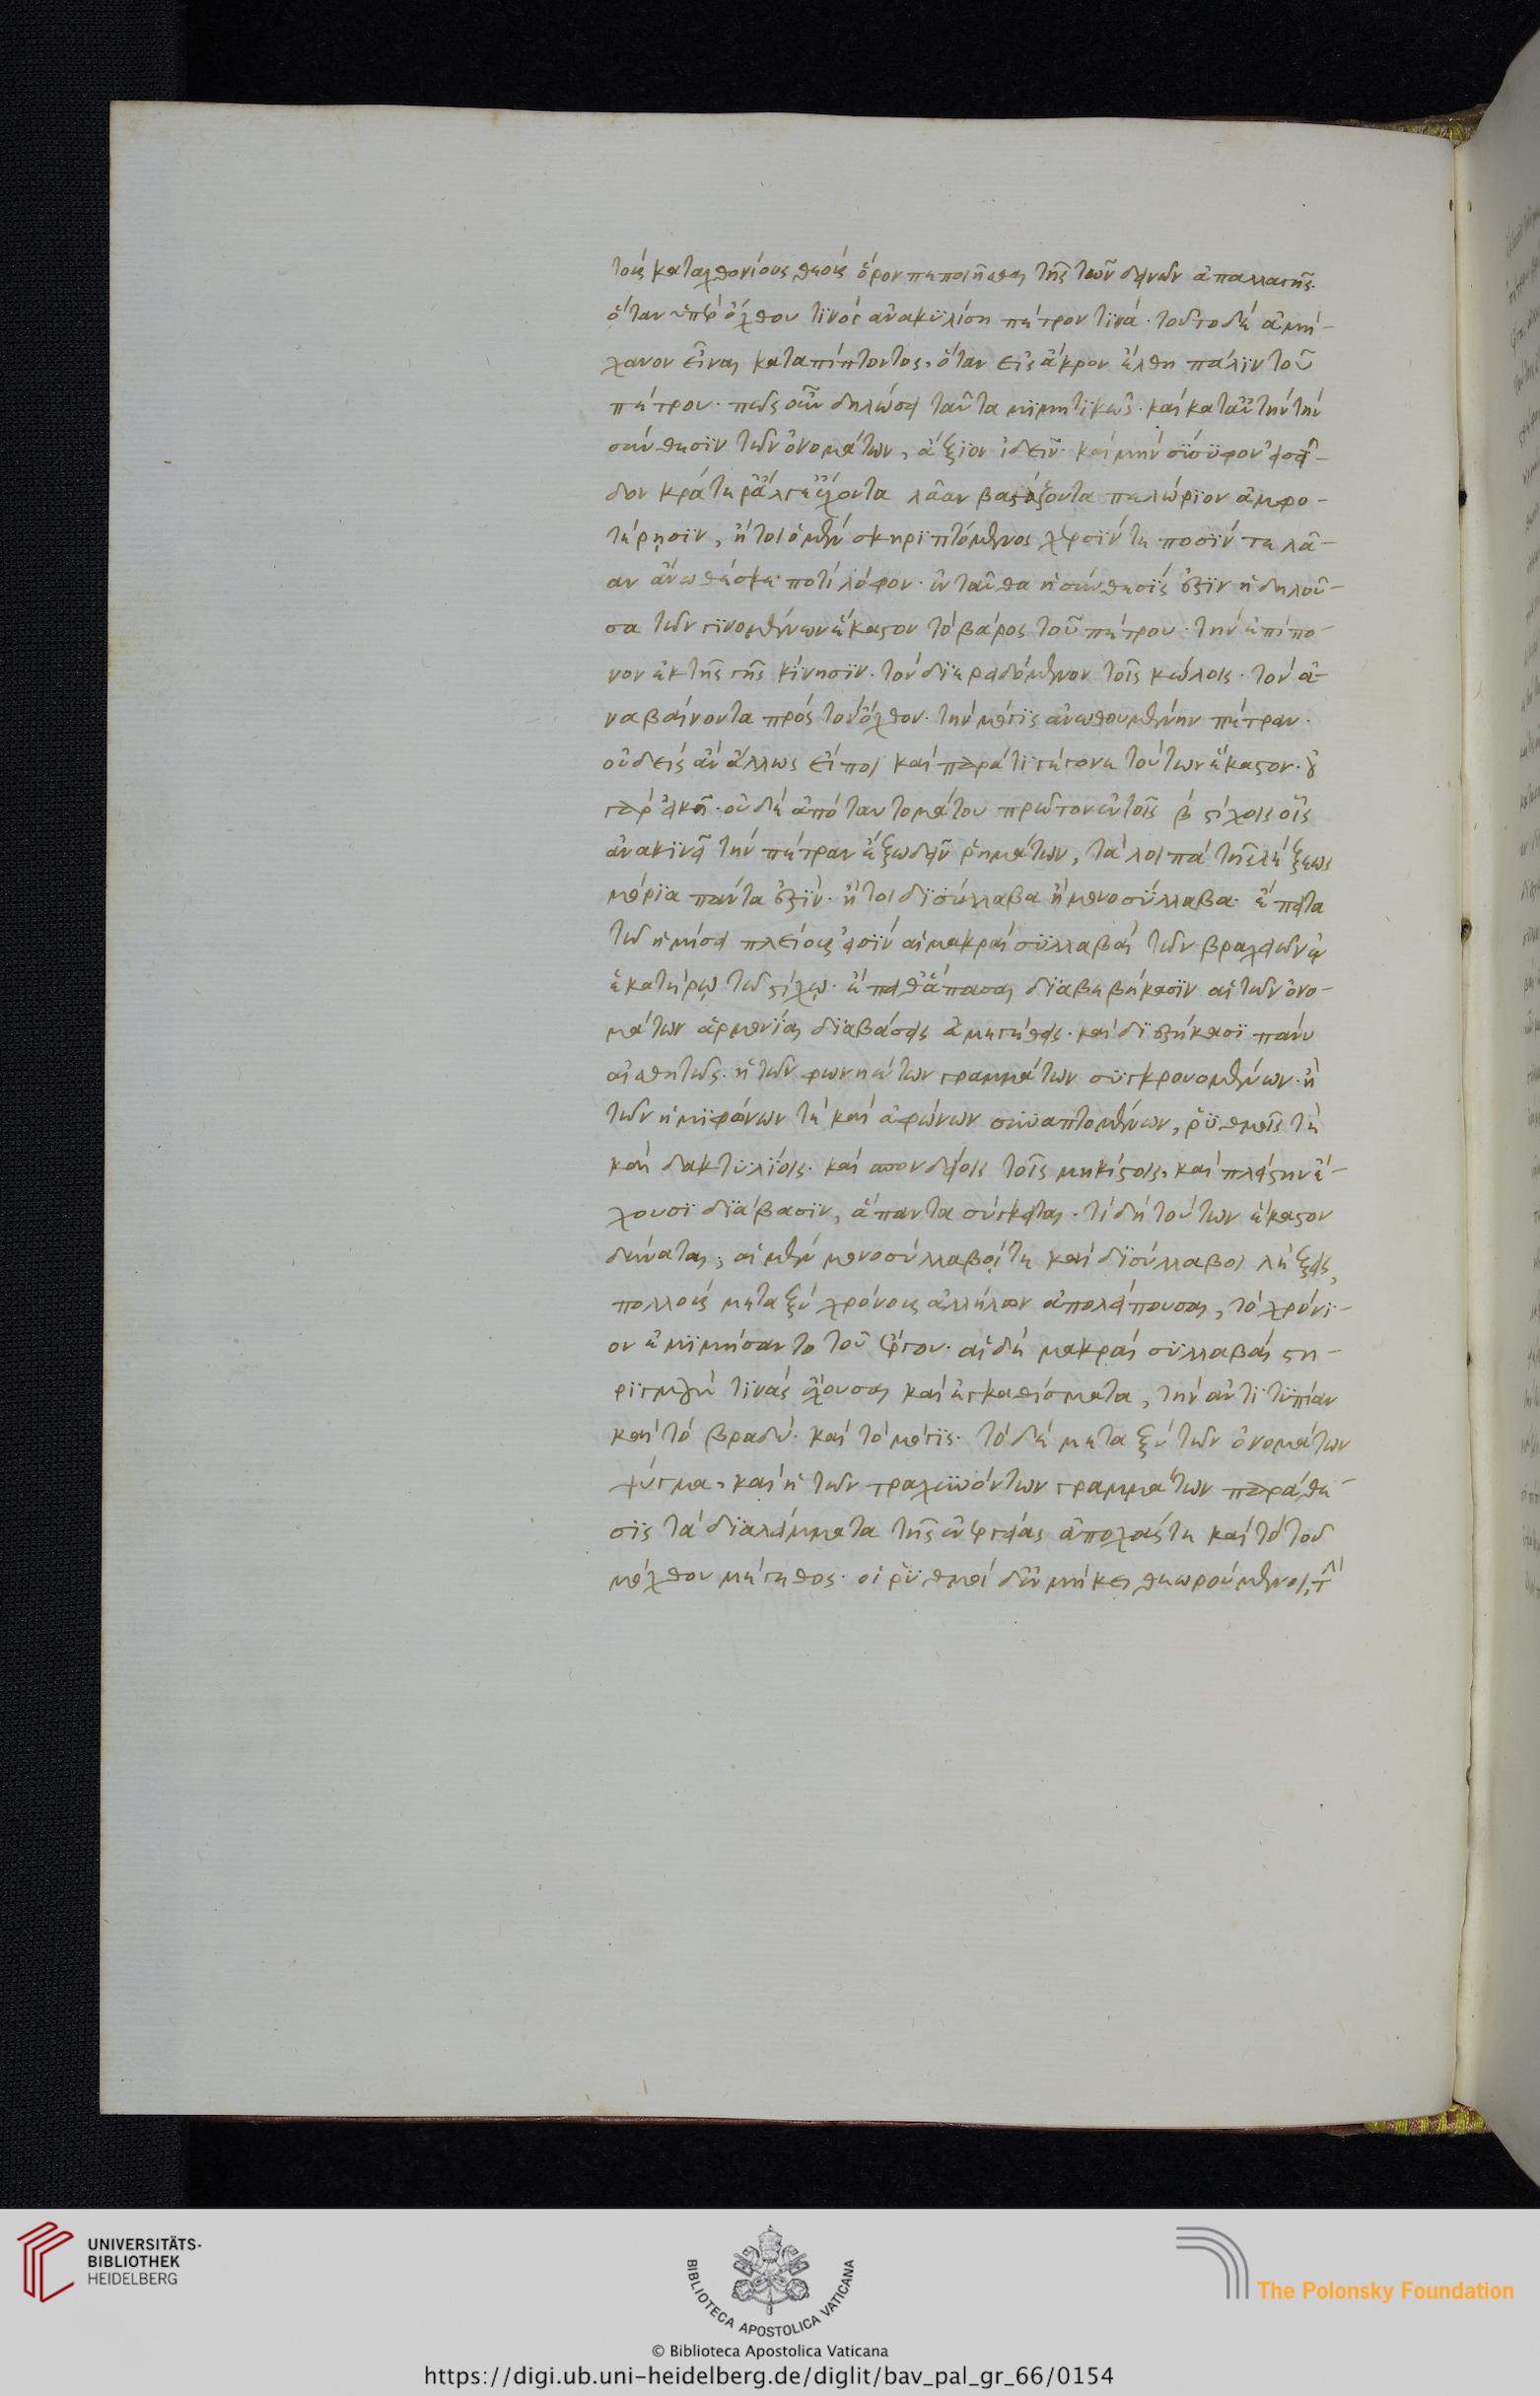 τοὺς καταχθονίους θεοὺς ὅρον πεποιῆσθαι τῆς τῶν δεινῶν ἀπαλλαγῆς.
ὅταν ὑπὲρ ὄχθου τϊνὸς ἀνακϋλίση πέτρον τϊνά· τοῦτο δὲ ἀμή-
χανον εἶναι καταπίπτοντος, ὅταν εἰς ἄκρον ἔλθη πάλϊν τοῦ
πέτρου· πῶς οὖν δηλώσει ταῦτα μϊμητϊκῶς· καὶ κατ' αὐτὴν τὴν
σύνθεσϊν τῶν ὀνομάτων, ἄξϊον ἰδεῖν· καὶ μὴν σίσϋφον εἰσεῖ-
δον κράτερ' ἄλγε' ἔχοντα λᾶαν βαστάζοντα πελώρϊον ἀμφο-
τέρησϊν, ἤτοι ὁ μὲν σκηρϊπτόμενος χερσίν τε ποσίν τε λᾶ-
αν ἄνω θέσκε ποτὶ λόφον· ἐνταῦθα ἡ σύνθεσίς ἐστϊν ἡ δηλοῦ-
σα τῶν γϊνομένων ἕκαστον τὸ βάρος τοῦ πέτρου· τὴν ἐπίπο-
νον ἐκ τῆς γῆς κίνησϊν· τὸν δϊεραδόμενον τοῖς κώλοις· τὸν ἀ-
ναβαίνοντα πρὸς τὸν ὄχθον· τὴν μόγϊς ἀνωθουμένην πέτραν·
οὐδεὶς ἂν ἄλλως εἴποι καὶ παρὰ τί γέγονε τούτων ἕκαστον· οὐ
γὰρ εἰκῆ· οὐδὲ ἀπὸ ταυτομάτου πρῶτον ἐν τοῖς β στίχοις οἷς
ἀνακϊνεῖ τὴν πέτραν ἔξω δυεῖν ῥημάτων, τὰ λοιπὰ τῆς λέξεως
μόρϊα πάντα ἐστίν· ἤτοι δϊσύλλαβα ἢ μονοσύλλαβα· ἔπειτα
τῶ ἡμίσει πλείους εἰσϊν αἱ μακραὶ σϋλλαβαὶ τῶν βραχειῶν ἐν
ἑκατέρῳ τῶ στίχῳ· ἔπειθ' ἅπασαι δϊαβεβήκασϊν αἱ τῶν ὀνο-
μάτων ἁρμονίαι δϊαβάσεις εὐμεγέθεις· καὶ δϊεστήκασϊ πάνυ
αἰσθητῶς· ἢ τῶν φωνηέντων γραμμάτων σϋγκρουομένων· ἢ
τῶν ἡμϊφώνων τὲ καὶ ἀφώνων σϋναπτομένων, ῥϋθμοῖς τὲ
καὶ δακτϋλίοις· καὶ σπονδείοις τοῖς μηκίστοις, καὶ πλείστην ἔ-
χουσϊ δϊάβασϊν, ἅπαντα σύγκειται· τί δὴ τούτων ἕκαστον
δύναται; αἱ μὲν μονοσύλλαβοί τε καὶ δϊσύλλαβοι λέξεις,
πολλοὺς μεταξὺ χρόνους ἀλλήλων ἀπολείπουσαι, τὸ χρόνϊ-
ον ἐμϊμήσαντο τοῦ ἔργου· αἱ δὲ μακραὶ σϋλλαβαὶ στη-
ρϊγμούς τϊνας ἔχουσαι καὶ ἐγκαθίσματα, τὴν ἀντϊτϋπίαν
καὶ τὸ βραδύ· καὶ τὸ μόγϊς· τὸ δὲ μεταξὺ τῶν ὀνομάτων
ψύγμα, καὶ ἡ τῶν τραχϋνόντων γραμμάτων παράθε-
σϊς τὰ δϊαλείμματα τῆς ἐνεργείας ἀποχάς τε καὶ τὸ τοῦ
μόχθου μέγεθος· οἱ ῥϋθμοὶ δ' ἐν μήκει θεωρούμενοι, τὴν